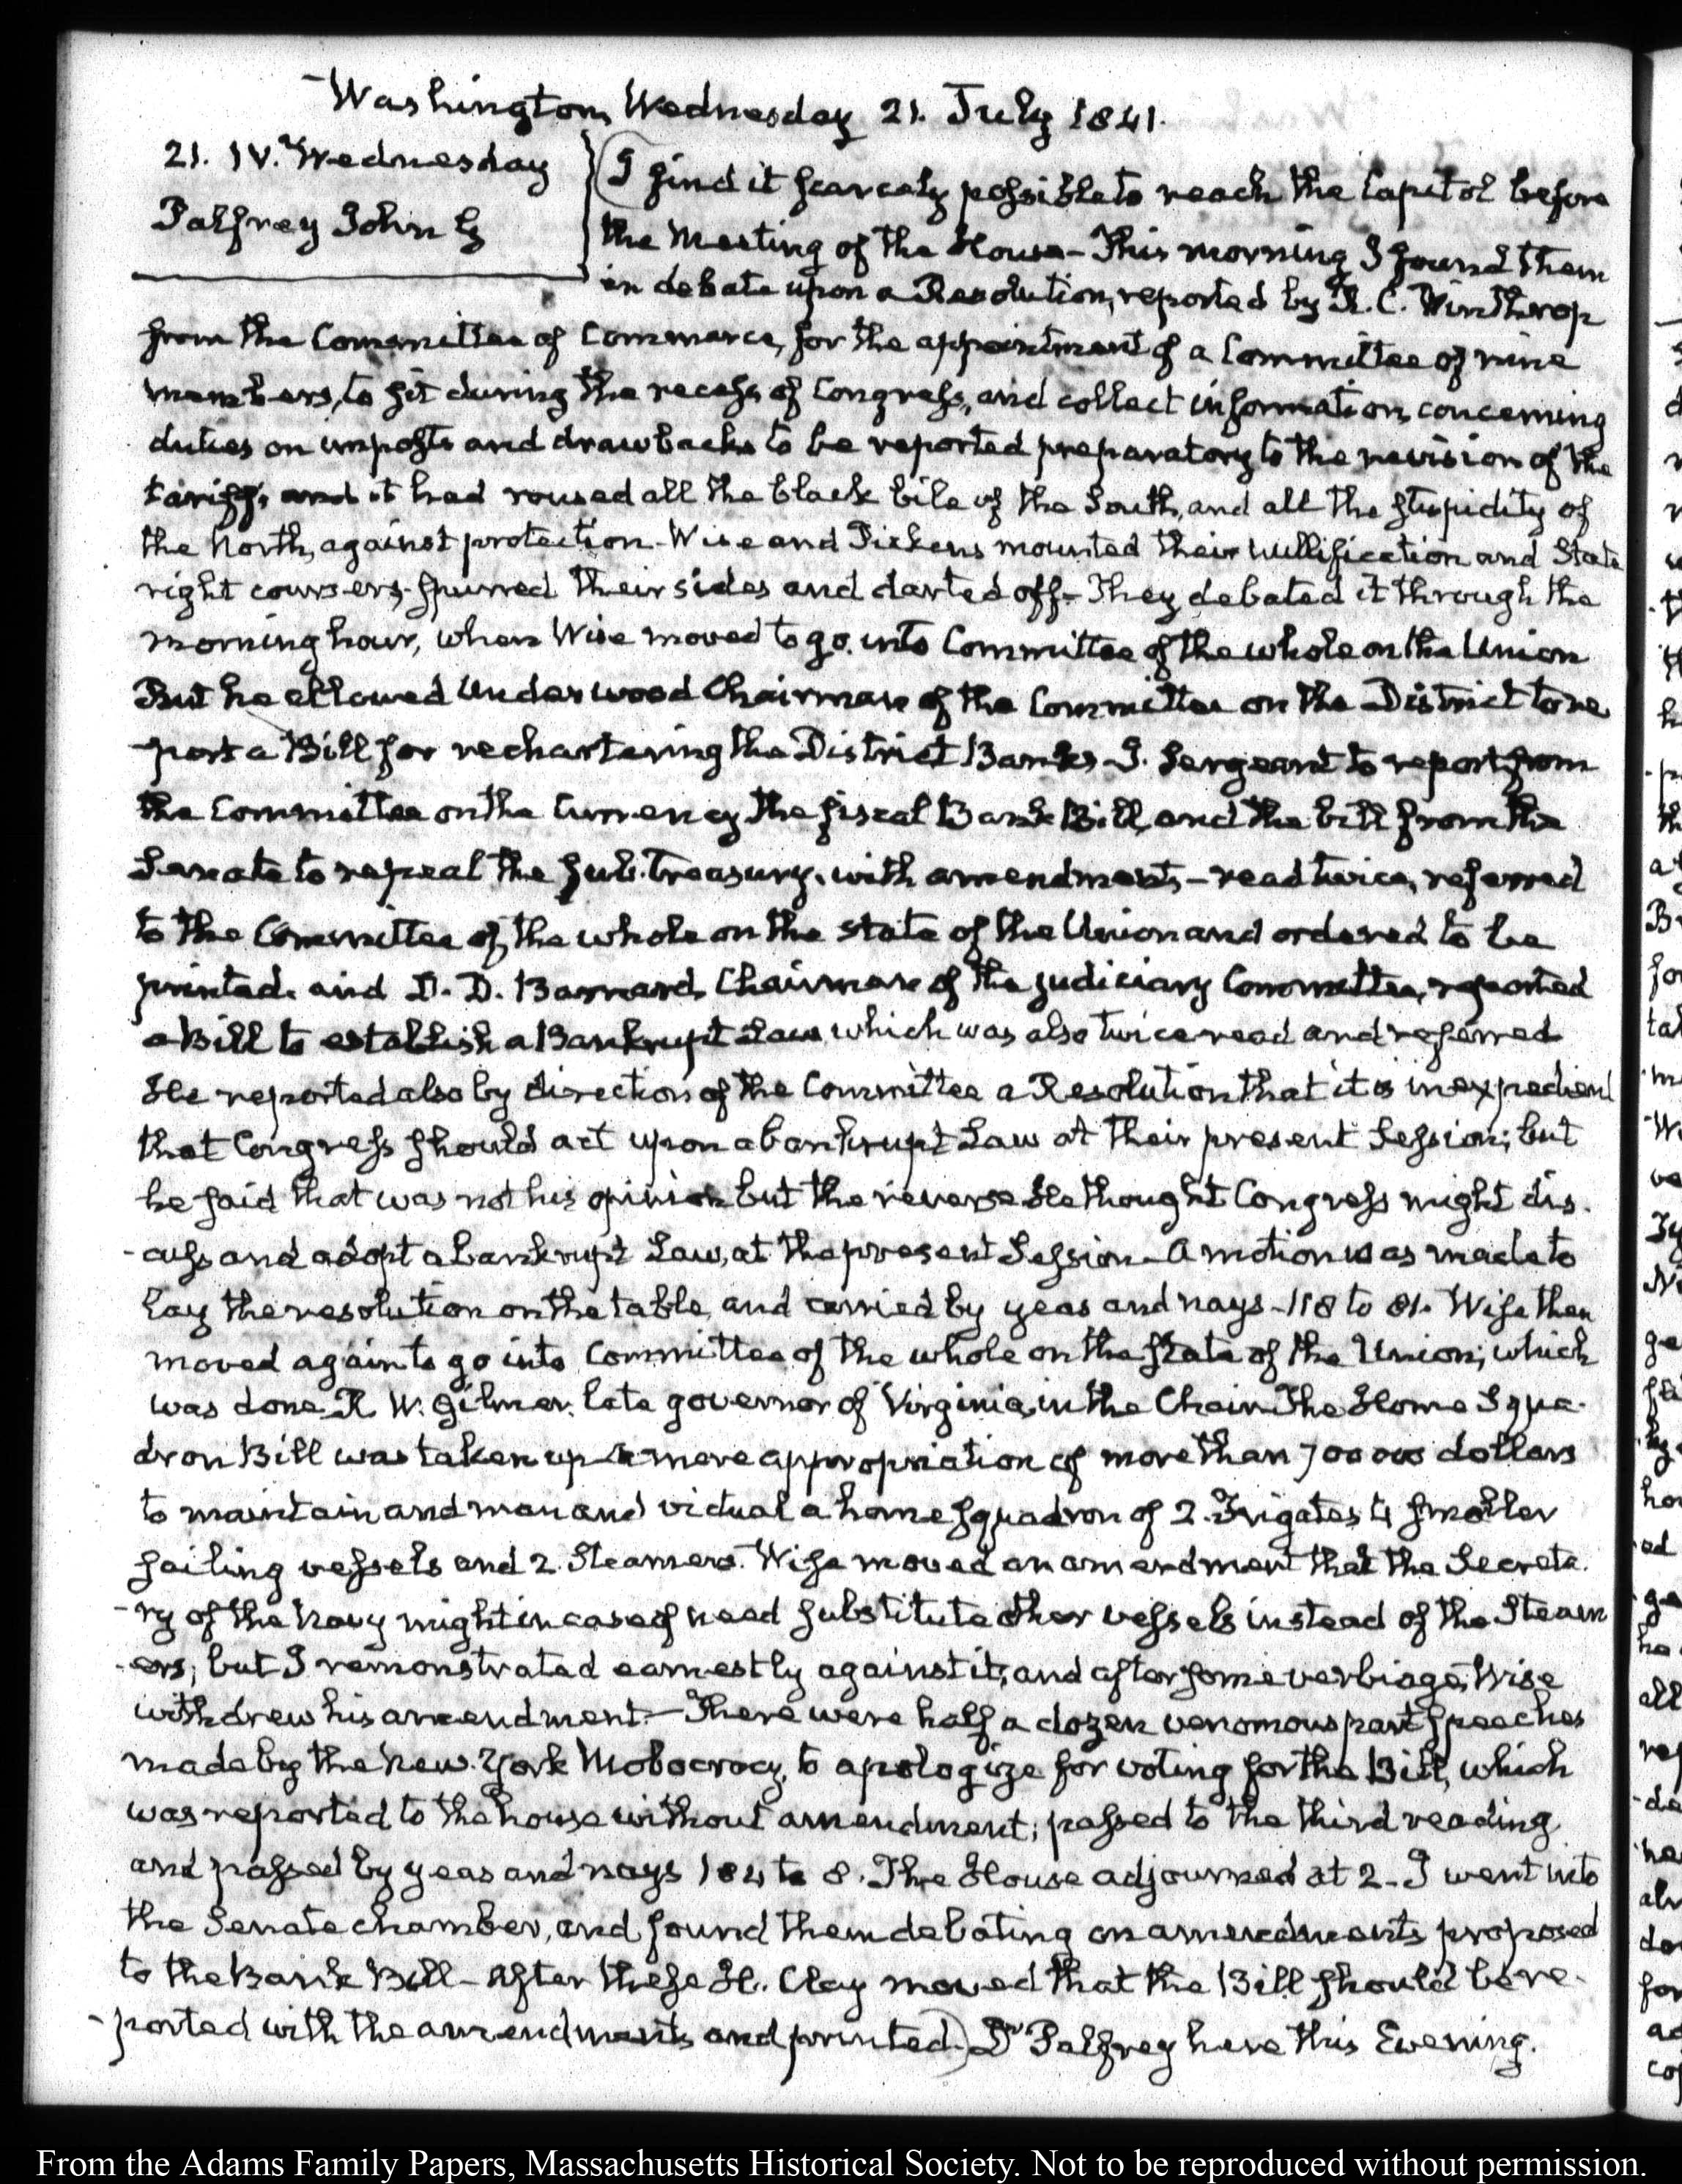 Washington, Wednesday 21. July 1841.
21. IV. Wednesday
Palfrey John G
I find it scarcely possible to reach the Capitol before
the Meeting of the House – This morning I found them
in debate upon a Resolution, reported by R. C. Winthrop
from the Committee of Commerce, for the appointment of a Committee of nine
members, to sit during the recess of Congress, and collect information, concerning
duties on imposts and drawbacks to be reported preparatory to the revision of the
tariff, and it had roused all the black bile of the South, and all the stupidity of
the North, against protection. Wise and Pickens mounted their Nullification and State
right coursers, spurred their sides and darted off – They debated it through the
morning hour, when Wise moved to go into Committee of the whole on the Union
But he allowed Underwood Chairman of the Committee on the District to re
-port a Bill for rechartering the District Banks – J. Sergeant to report from
the Committee on the Currency the fiscal Bank Bill, and the bill from the
Senate to repeal the sub-treasury, with amendments, – read twice, referred
to the Committee of the whole on the state of the Union and ordered to be
printed. and D. D. Barnard, Chairman of the judiciary Committee, reported
a Bill to establish a Bankrupt Law, which was also twice read and referred
He reported also by direction of the Committee a Resolution that it is inexpedient
that Congress should act upon a bankrupt Law at their present Session; but
he said that was not his opinion but the reverse. He thought Congress might dis-
-cuss and adopt a bankrupt Law, at the present Session – A motion was made to
lay the resolution on the table, and carried by yeas and nays – 118 to 81. Wise then
moved again to go into Committee of the whole on the State of the Union; which
was done R. W. Gilmer, late governor of Virginia, in the Chair. The Home Squa-
dron Bill was taken up – A mere appropriation of more than 700 000 dollars
to maintain and man and victual a home squadron of 2. Frigates, 4 smaller
sailing vessels and 2. Steamers. Wise moved an amendment that the Secreta-
-ry of the Navy might in case of need substitute other vessels instead of the Steam
-ers; but I remonstrated earnestly against it; and after some verbiage, Wise
withdrew his amendment. – There were half a dozen venomous part speeches
made by the New-York Mobocracy, to apologize for voting for the Bill, which
was reported to the house without amendment; passed to the third reading
and passed by yeas and nays 184 to 8. The House adjourned at 2 – I went into
the Senate chamber, and found them debating on amendments proposed
to the Bank Bill – After these H. Clay moved that the Bill should be re-
-ported with the amendments and printed.) Dr Palfrey here this Evening.
From the Adams Family Papers, Massachusetts Historical Society. Not to be reproduced without permission.